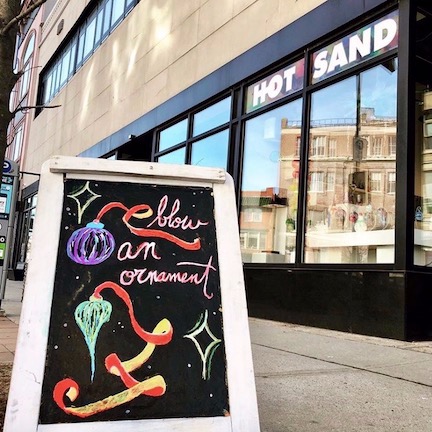 HOT SAND
blow
an
ornament